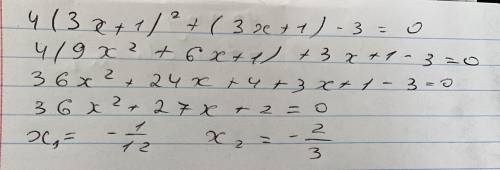 4(3x+1)² + (3x+1) - 3 = 0
4(9x² + 6x+1) + 3x+1-3=0
36x² + 24x + 4 + 3x + 1 - 3=0
36x² + 27x + 2 = 0
x₁ = - 1/12 x₂ = - 2/3